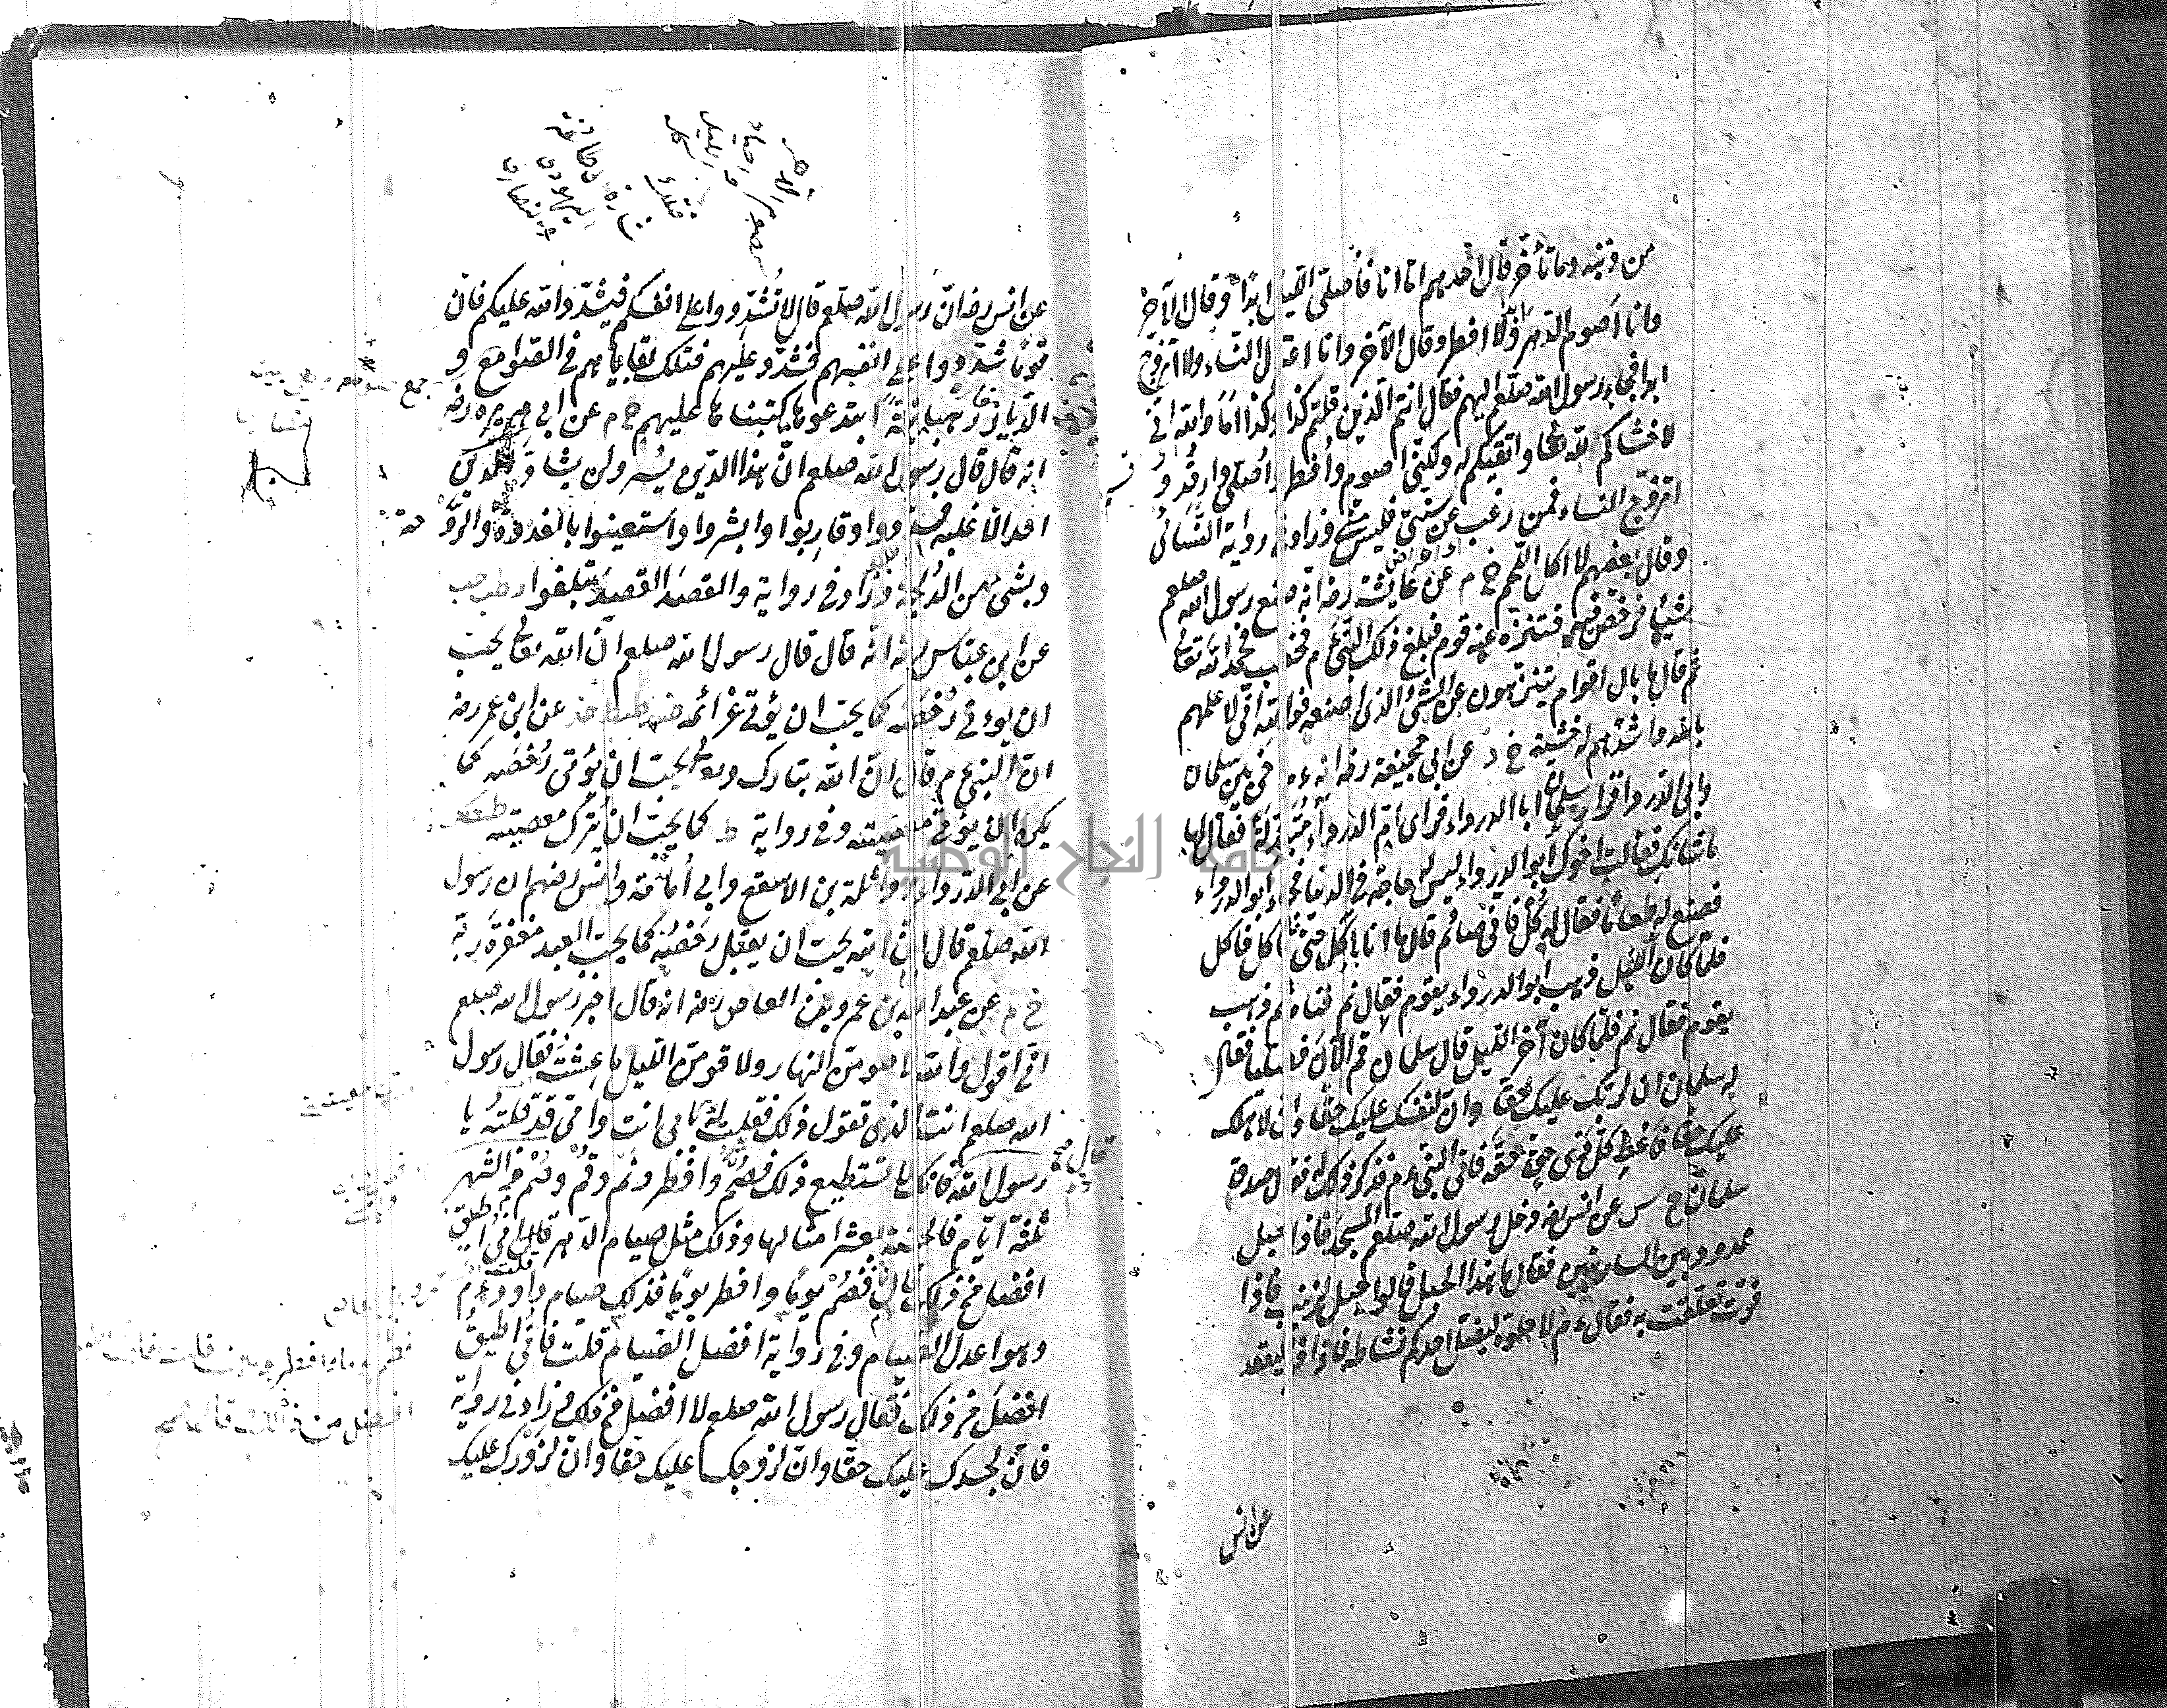 من ذنبه وما تأخر قال احدهم اما انا فاصلي الليل ابدا وقال الآخر
وانا اصوم الدهر ولا افطر وقال الآخر وانا اعتزل النساء ولا اتزوج
ابدا فجاء رسول الله صلعم اليهم فقال انتم الذين قلتم كذا وكذا اما والله اني
لاخشاكم لله تعا واتقيكم له ولكني اصوم وافطر واصلي وارقد و
اتزوج النساء فمن رغب عن سنتي فليس مني وزاد في رواية النسائي
وقال بعضهم لا آكل اللحم خ م عن عايشة رضه انه صنع رسول الله صلعم
شيئا فرخص فيه فتنزه عنه قوم فبلغ ذلك النبي عم فخطب فحمد الله تعا
ثم قال ما بال اقوام يتنزهون عن الشئ الذي اصنعه فوالله اني لاعلمهم
بالله واشدهم له خشية خ د عن ابي جحيفة رضه انه عم آخى بين سلمان
وابي الدرداء فزار سلمان ابا الدرداء فراى ام الدرداء متبذلة فقال لها
ما شانك فقالت اخوك ابو الدرداء ليس له حاجة في الدنيا فجاء ابو الدرداء
فصنع له طعاما فقال له كل فاني صائم قال ما انا باكل حتى تاكل فاكل
فلما كان الليل ذهب ابو الدرداء يقوم فقال نم فنام ثم ذهب
يقوم فقال نم فلما كان آخر الليل قال سلمان قم الآن فصليا فقال
له سلمان ان لربك عليك حقا وان لنفسك عليك حقا وان لاهلك
عليك حقا فاعط كل ذي حق حقه فاتى النبي عم فذكر ذلك له فقال صدق
سلمان خ س عن انس رضه دخل رسول الله صلعم المسجد فاذا حبل
ممدود بين الساريتين فقال ما هذا الحبل قالوا حبل لزينب فاذا
فترت تعلقت به فقال عم لا حلوه ليصل احدكم نشاطه فاذا فتر فليقعد
عن انس
عن انس رضه ان رسول الله صلعم قال لا تشددوا على انفسكم فيشدد الله عليكم فان
قوما شددوا على انفسهم فشدد عليهم فتلك بقاياهم في الصوامع و
الديار رهبانية ابتدعوها ما كتبناها عليهم خ م عن ابي هريرة رضه
انه قال قال رسول الله صلعم ان هذا الدين يسر ولن يشاد الدين
احد الا غلبه فسددوا وقاربوا وابشروا واستعينوا بالغدوة والروحة
وبشئ من الدلجة وزاد في رواية والقصد القصد تبلغوا
عن ابن عباس رضه انه قال قال رسول الله صلعم ان الله تعا يحب
ان يؤتى رخصه كما يحب ان يؤتى عزائمه عن ابن عمر رضه
ان النبي عم قال ان الله تبارك وتعا يحب ان يؤتى رخصه كما
يكره ان يؤتى معصيته وفي رواية كما يحب ان يترك معصيته
عن ابي الدرداء وواثلة بن الاسقع وابي امامة وانس رضهم ان رسول
الله صلعم قال ان الله يحب ان يقبل رخصه كما يحب العبد مغفرة ربه
خ م عن عبد الله بن عمرو بن العاص رضه انه قال اخبر رسول الله صلعم
اني اقول والله لاصومن النهار ولاقومن الليل ما عشت فقال رسول
الله صلعم انت الذي تقول ذلك فقلت له بابي انت وامي قد قلته يا
رسول الله قال فانك لا تستطيع ذلك فصم وافطر ونم وقم وصم من الشهر
ثلثة ايام فان الحسنة بعشر امثالها وذلك مثل صيام الدهر قلت اني اطيق
افضل من ذلك قال فصم يوما وافطر يوما فذلك صيام داود عم
وهو اعدل الصيام وفي رواية افضل الصيام قلت فاني اطيق
افضل من ذلك فقال رسول الله صلعم لا افضل من ذلك وزاد في رواية
فان لجسدك عليك حقا وان لزوجك عليك حقا وان لزورك عليك
جامعة النجاح الوطنية